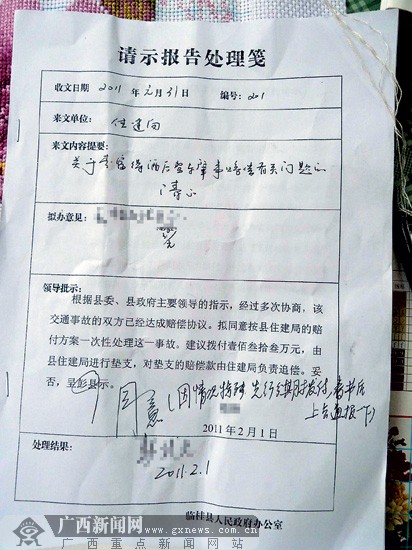 请示报告处理笺
收文日期 2011 年元月31日 编号: 201
来文单位: 住建局
来文内容提要:
关于 酒后 肇事 有关问题的
请示
拟办意见:
领导批示:
根据县委、县政府主要领导的指示，经过多次协商，该
交通事故的双方已经达成赔偿协议。拟同意按县住建局的赔
付方案一次性处理这一事故。建议拨付壹佰叁拾叁万元，由
县住建局进行垫支，对垫支的赔偿款由住建局负责追偿。妥
否，呈 县示。
同意(因情况特殊 先行 拨付,春节后
上会通报一下)
2011年2月1日
处理结果:
2011.2.1
临桂县人民政府办公室
广西新闻网
www.gxnews.com.cn
广西重点新闻网站